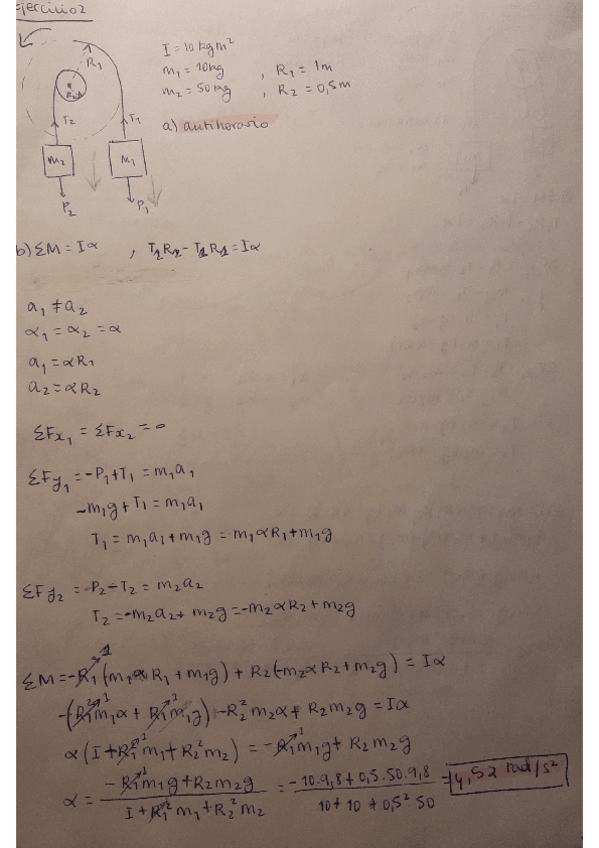 Ejercicio 2
I = 10 kg m²
m₁ = 10 kg , R₁ = 1m
m₂ = 50 kg , R₂ = 0,5m
a) antihorario
R₁
R₂
T₂ T₁
m₂ m₁
P₂ P₁
b) ΣM = Iα , T₂R₂ - T₁R₁ = Iα
a₁ ≠ a₂
α₁ = α₂ = α
a₁ = αR₁
a₂ = αR₂
ΣFx₁ = ΣFx₂ = 0
ΣFy₁ = -P₁ + T₁ = m₁a₁
-m₁g + T₁ = m₁a₁
T₁ = m₁a₁ + m₁g = m₁αR₁ + m₁g
ΣFy₂ = P₂ - T₂ = m₂a₂
T₂ = -m₂a₂ + m₂g = -m₂αR₂ + m₂g
ΣM = -R₁¹(m₁αR₁ + m₁g) + R₂(-m₂αR₂ + m₂g) = Iα
-(R₁²¹m₁α + R₁¹m₁g) - R₂²m₂α + R₂m₂g = Iα
α(I + R₁²¹m₁ + R₂²m₂) = -R₁¹m₁g + R₂m₂g
α = (-R₁¹m₁g + R₂m₂g) / (I + R₁²¹m₁ + R₂²m₂) = (-10·9,8 + 0,5·50·9,8) / (10 + 10 + 0,5² 50) = 4,52 rad/s²